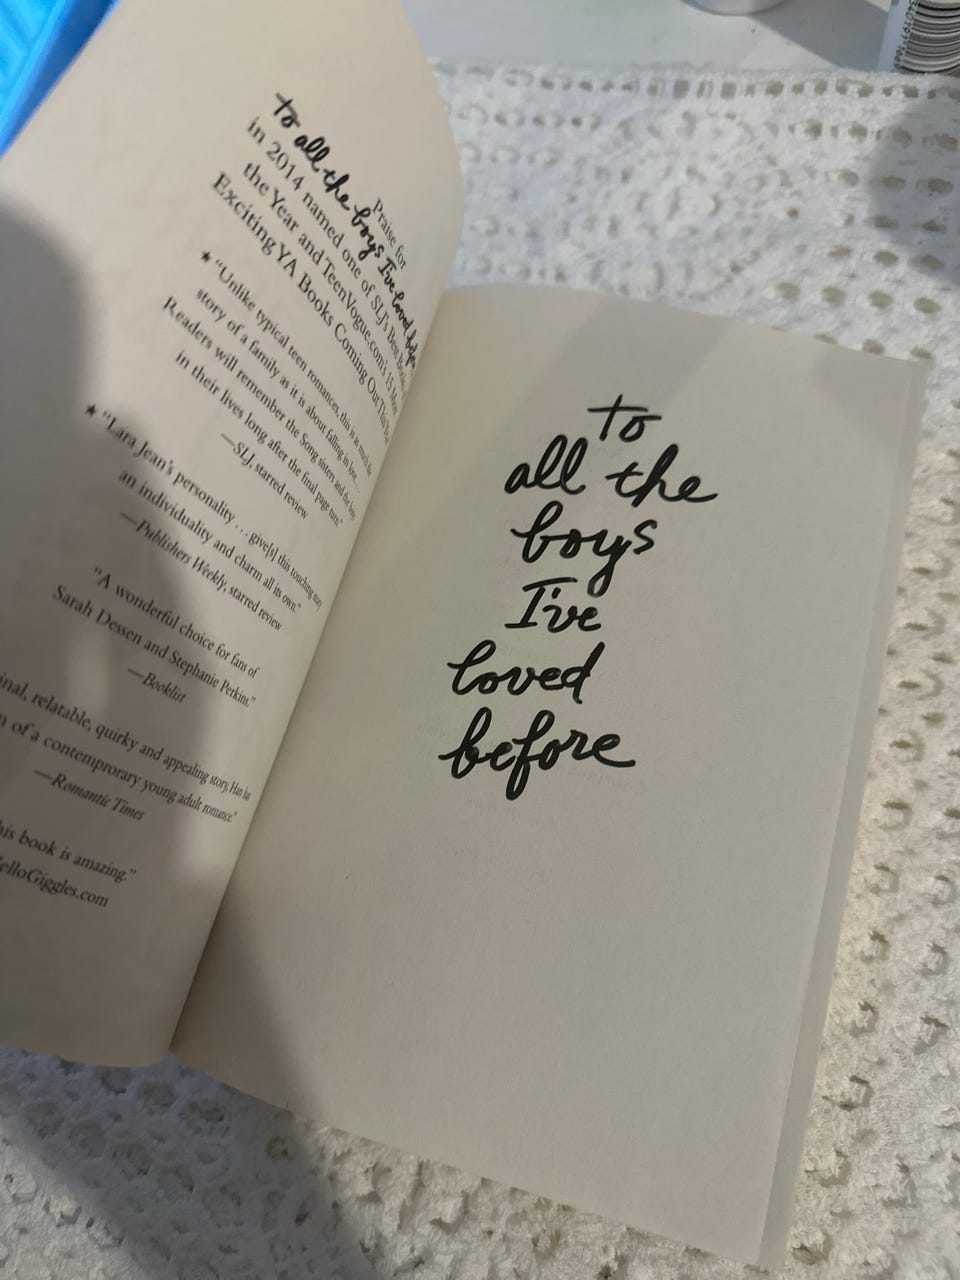 Praise for
to all the boys I've loved before
in 2014 named one of SLJ's Best Books of
the Year and TeenVogue.com's 15 Most
Exciting YA Books Coming Out This Year
★ "Unlike typical teen romances, this is as much the
story of a family as it is about falling in love. . .
Readers will remember the Song sisters and the boys
in their lives long after the final page turn."
—SLJ, starred review
★ "Lara Jean's personality . . . give[s] this touching story
an individuality and charm all its own."
—Publishers Weekly, starred review
"A wonderful choice for fans of
Sarah Dessen and Stephanie Perkins."
—Booklist
relatable, quirky and appealing story, Han has
of a contemprorary young adult romance."
—Romantic Times
book is amazing."
elloGiggles.com
to
all the
boys
I've
loved
before